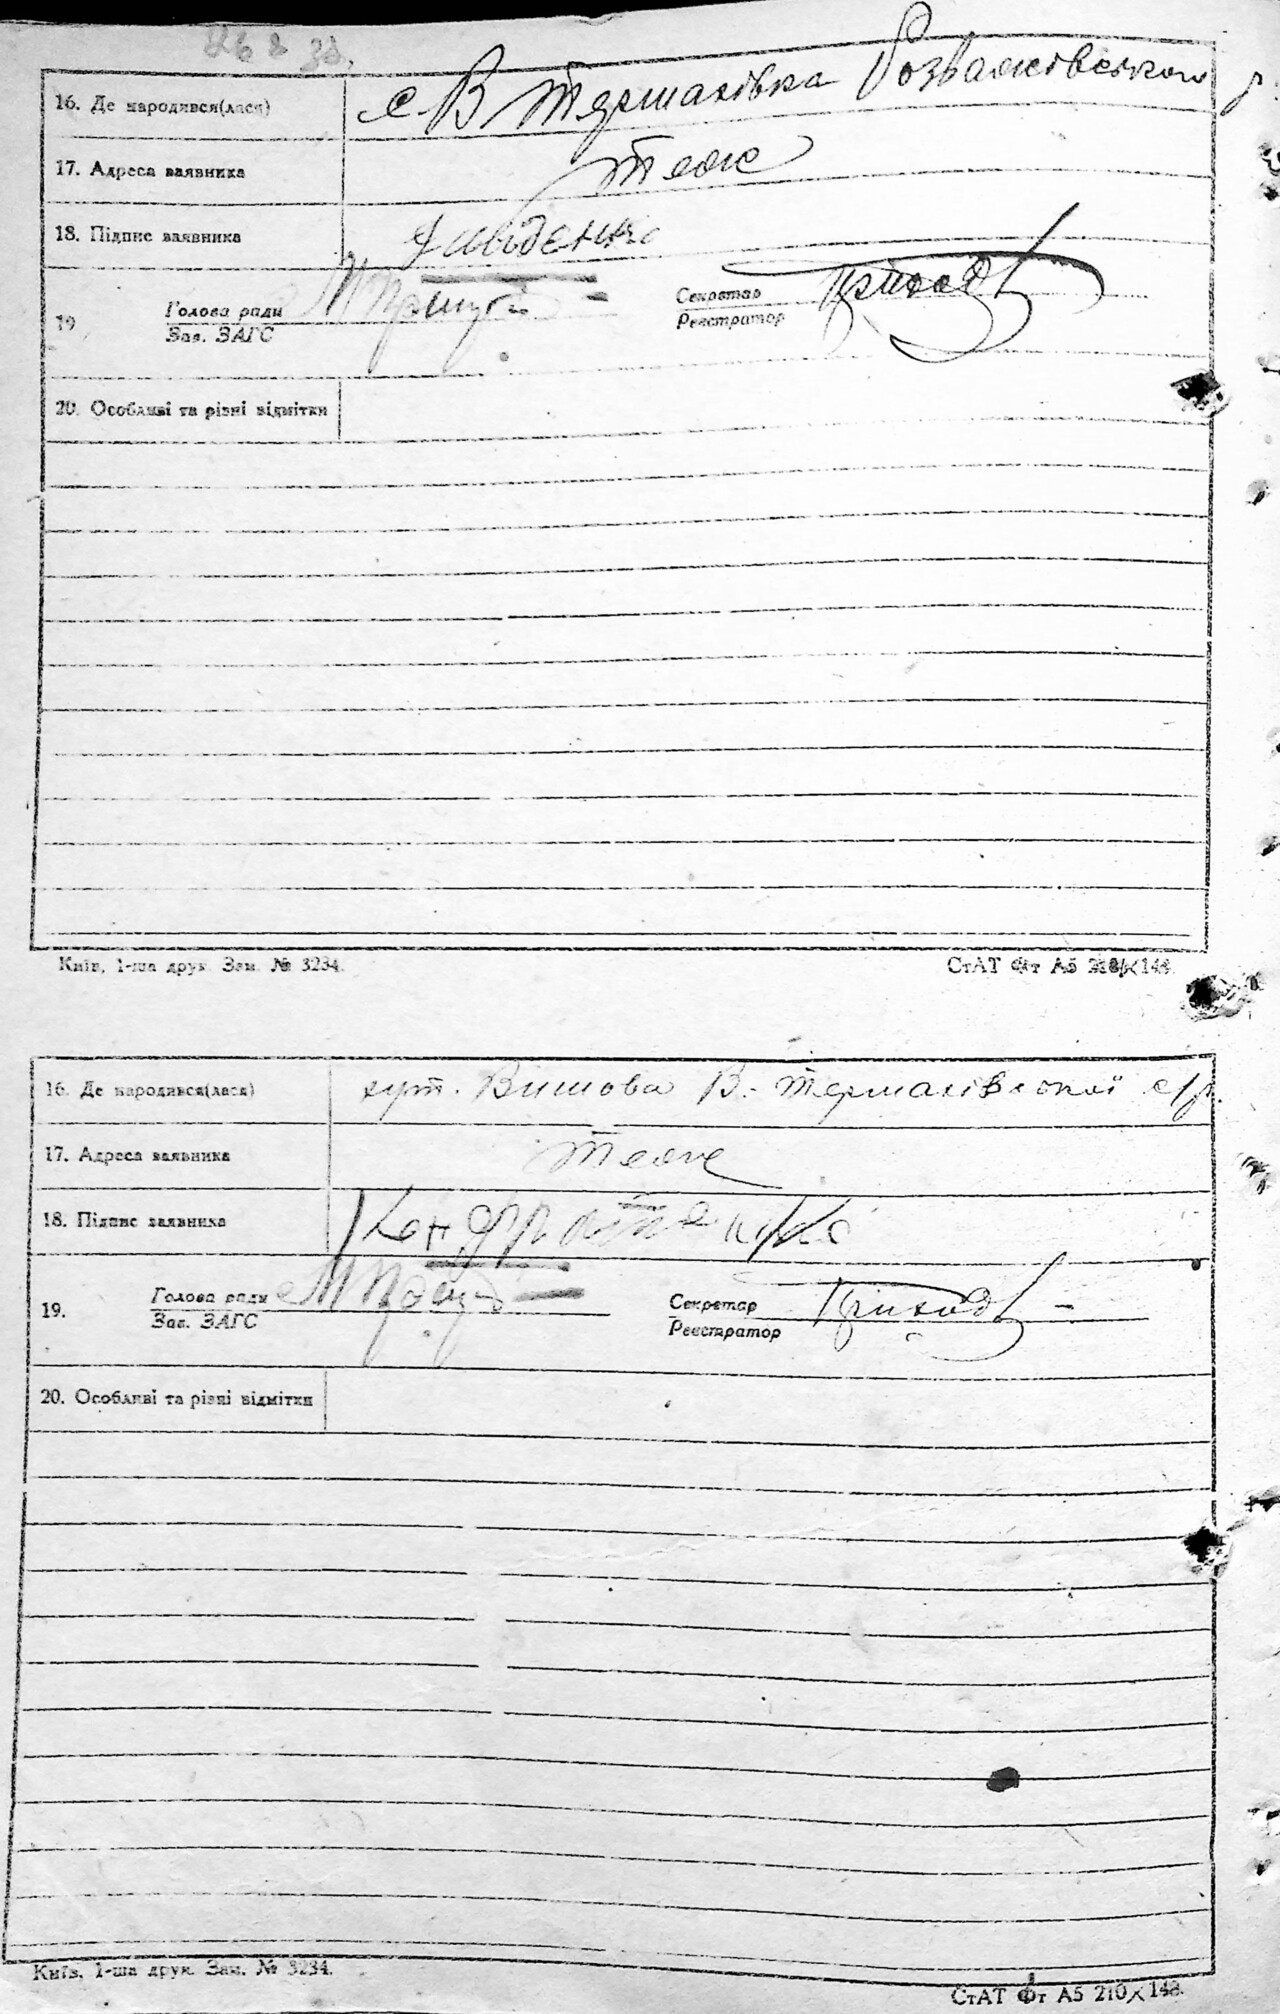 16. Де народився(лася) с В Термахівка Розважівського р.
17. Адреса заявника Теж
18. Підпис заявника Давиденко
19 Голова ради
Зав. ЗАГС
Секретар
Реєстратор
20. Особливі та різні відмітки
Київ, 1-ша друк. Зам. № 3234.
СтАТ Фт А5 210×148.
16. Де народився(лася) хут. Вишова В. Термахівської с/р.
17. Адреса заявника Теж
18. Підпис заявника Кондратенко
19. Голова ради
Зав. ЗАГС
Секретар
Реєстратор
20. Особливі та різні відмітки
Київ, 1-ша друк. Зам. № 3234.
СтАТ Фт А5 210×148.